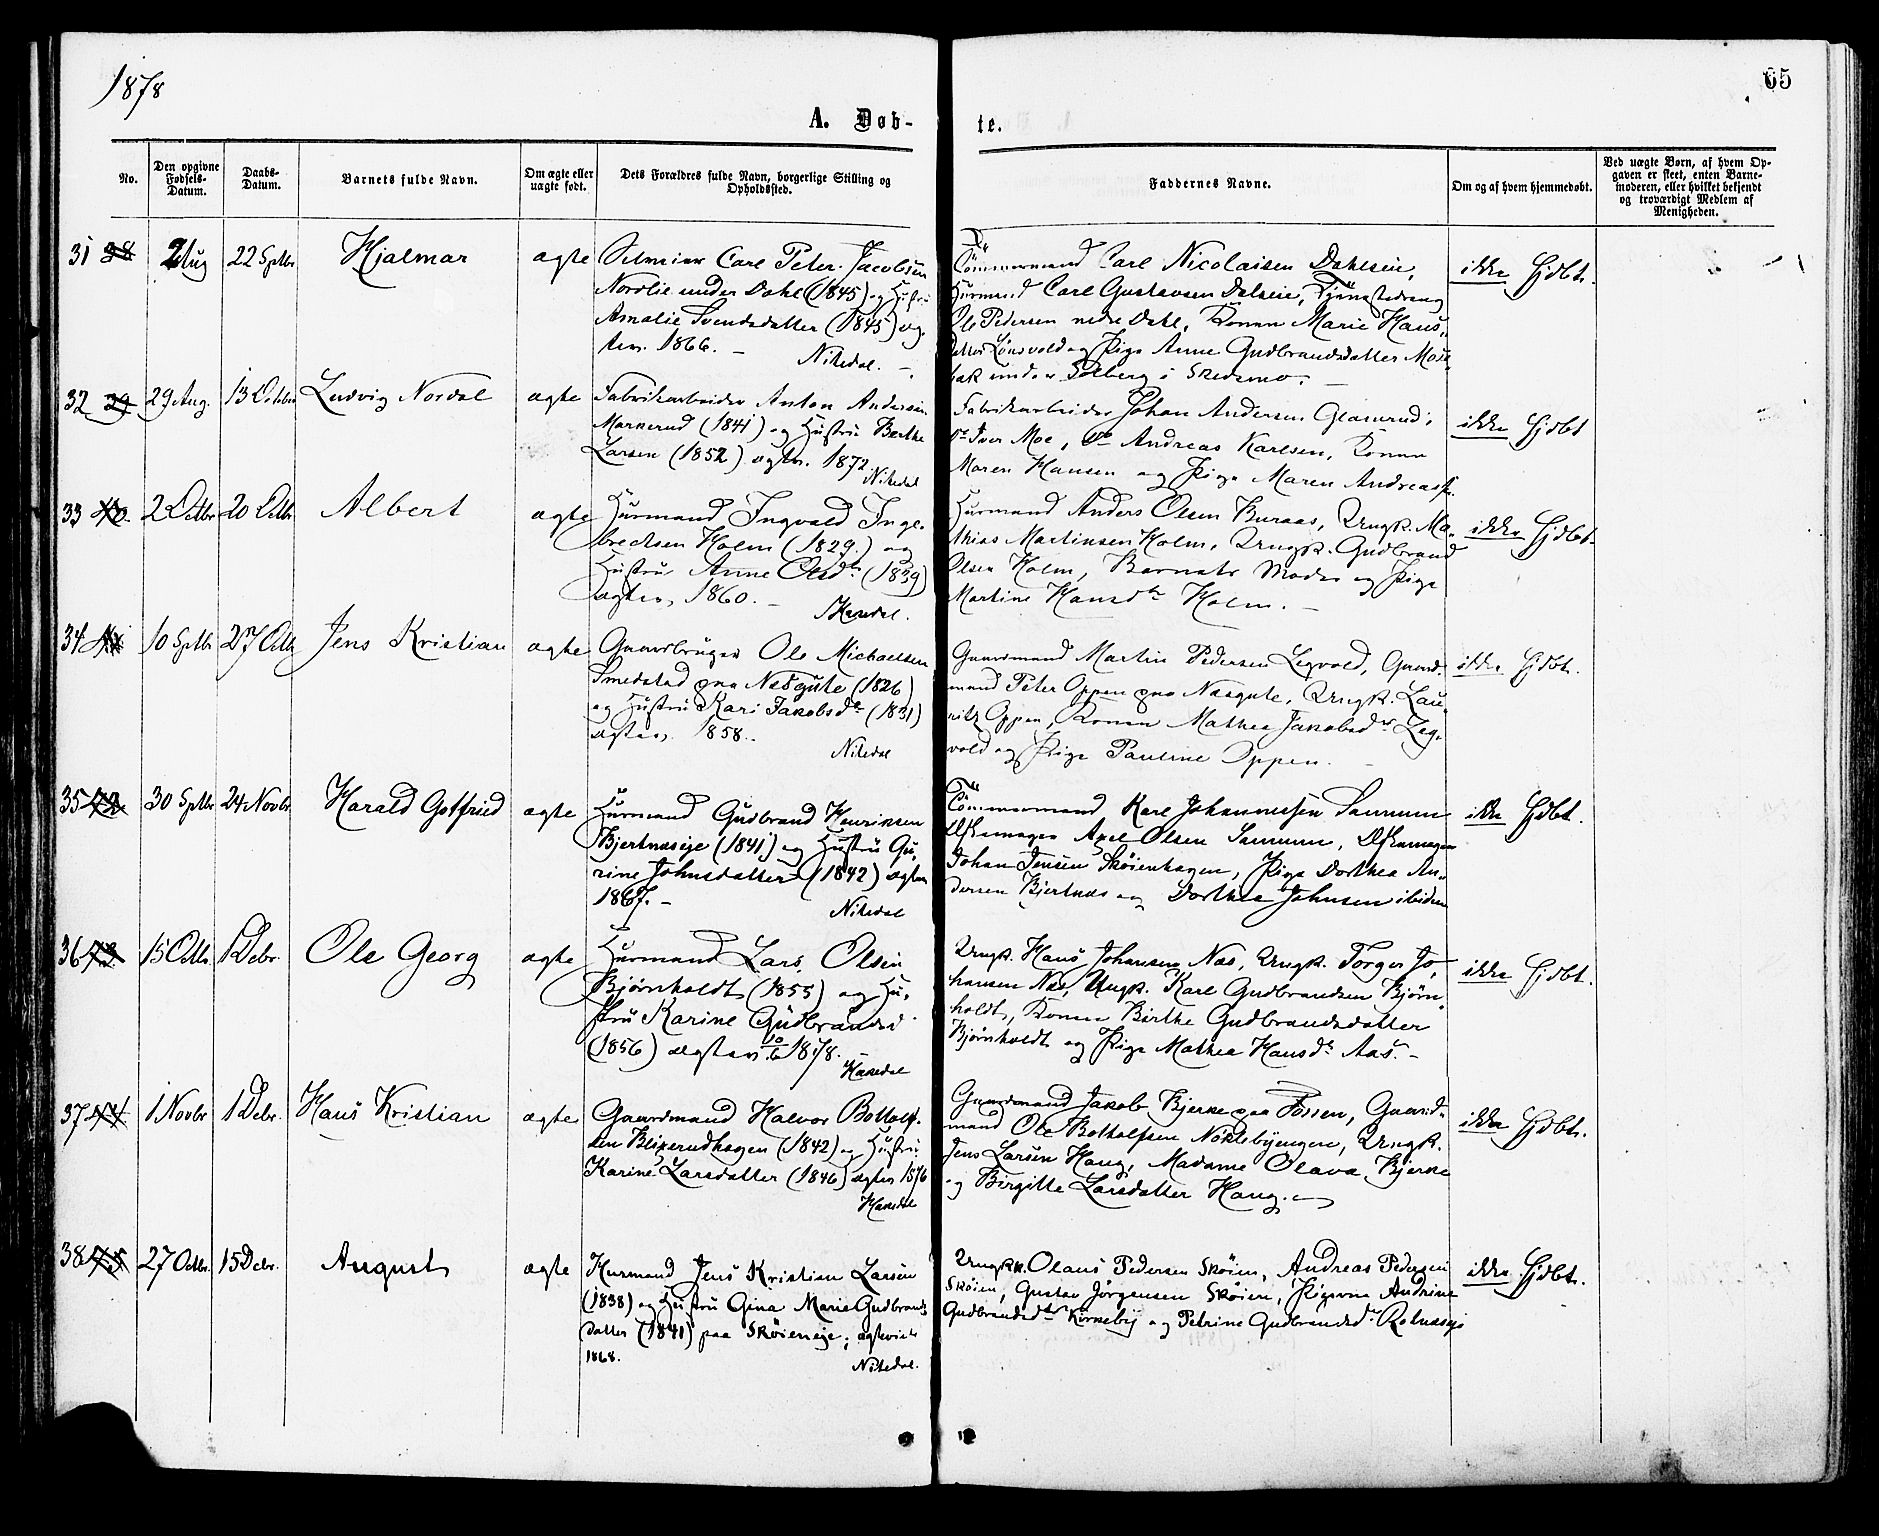 1878
65
A. Døb-
te.
No.
Den opgivne Fødsels-Datum.
Daabs-Datum.
Barnets fulde Navn.
Om ægte eller uægte født.
Dets Forældres fulde Navn, borgerlige Stilling og Opholdssted.
Faddernes Navne.
Om og af hvem hjemmedøbt.
Ved uægte Børn, af hvem Opgaven er skeet, enten Barnemoderen, eller hvilket bekjendt og troværdigt Medlem af Menigheden.
31 38 2 Aug 22 Sptbr Hjalmar ægte
Carl Peter Jacobsen
Nordlie under Dahl (1845) og Hustru
Amalie Svendsdatter (1845) æg
tev. 1866. — Nitedal. —
Tömmermand Carl Nicolaisen Dahlseie,
Husmand Carl Gustavsen Dalseie,
Ole Pedersen nedre Dahl, Konen Marie Hans,,
datter og Pige Anne Gudbrandsdatter
under Solberg i Skedsmo. —
ikke Hjdbt.
32 39 29 Aug. 13 Octobr Ludvig Nordal ægte
Fabrikarbeider Anton Andersen
Markerud (1841) og Hustru Berthe
Larsen (1852) ægtev. 1872
Nitedal
Fabrikarbeider Johan Andersen Glaserud,
do Iver Moe, do Andreas Karlsen, Konen
Maren Hansen og Pige Maren
ikke Hjdbt
33 40. 2 Octbr 20 Octbr Albert ægte
Husmand Ingvald Inge-
bretsen Holm (1829.) og
Hustru Anne Olsdtr (1839)
ægtev. 1860. —
Hakedal.
Husmand Anders Olsen Buraas, Ungk. Ma-
thias Martinsen Holm, Ungk. Gudbrand
Olsen Holm, Barnets Moder og Pige
Martine Hansdtr Holm. —
ikke Hjdbt.
34 41 10 Sptbr 27 Octb Jens Kristian ægte
Gaardbruger Ole Michaelsen
Smedstad paa Næsgute (1826)
og Hustru Kari Jakobsdtr (1831)
ægtev. 1858.
Nitedal
Gaardmand Martin Pedersen Legvold, Gaard-
mand Peter Oppen paa Næsgute, Ungk. Lau-
ritz Oppen, Konen Mathea Jakobsdtr Leg-
vold og Pige Pauline Oppen. —
ikke Hjdbt.
35 42 30 Sptbr 24 Novbr. Harald Gotfried ægte
Husmand Gudbrand Henriksen
Bjertnæseje (1841) og Hustru Gu,
rine Johnsdatter (1842) ægtev
1867. —
Nitedal
Tömmermand Karl Johannessen
Axel Olsen
Johan Jensen Skøienhagen, Pige Dorthea An-
dersen Bjertnæs og Dorthea Johnsen ibidem
ikke Hjdbt.
36 43 15 Octb. 1 Debr. Ole Georg ægte
Husmand Lars Olsen
Bjørnholdt (1855) og Hu,
stru Karine Gudbrandsd
(1856) ægtev. 10/6 1878. —
Hakedal
Ungk. Hans Johansen Næs, Ungk. Torger Jo,
hansen Næs, Ungk. Karl Gudbrandsen Bjørn
holdt, Konen Birthe Gudbrandsdatter
Bjørnholdt og Pige Mathea Hansdtr Aas. —
ikke Hjdbt.
37 44 1 Novbr 1 Debr. Hans Kristian ægte
Gaardmand Halvor Botholf-
sen Blikerudhagen (1842) og Hustru
Karine Larsdatter (1846) ægtev 1876
Hakedal
Gaardmand Jakob Bjerke paa Fossen, Gaard-
mand Ole Botholfsen Nöklebyengen, Ungk.
Jens Larsen Haug, Madame Olava Bjerke
og Birgitte Larsdatter Haug. —
ikke Hjdbt.
38 45 27 Octbr. 15 Debr. August ægte
Husmand Jens Kristian Larsen
(1838) og Hustru Gina Marie Gudbrands
datter (1841) paa Skøieneje; ægteviet
1868.
Nitedal.
Ungk. Olaus Pedersen Skøien, Andreas Pedersen
Skøien, Gustav Jørgensen Skøien, Pigerne Andrine
Gudbrandsdtr Kirkeby og Petrine Gudbrandsd
ikke Hjdbt.